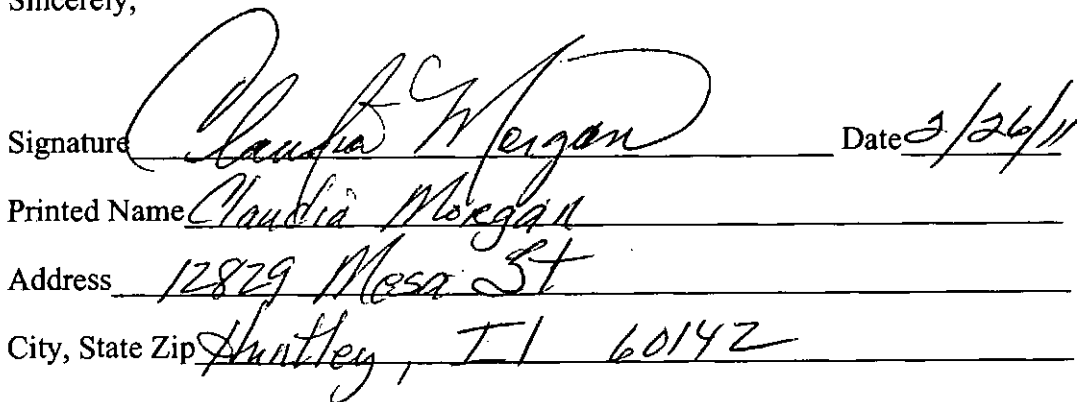 Sincerely,
Signature Claudia Morgan Date 2/26/11
Printed Name Claudia Morgan
Address 12829 Mesa St
City, State Zip Huntley, Il 60142